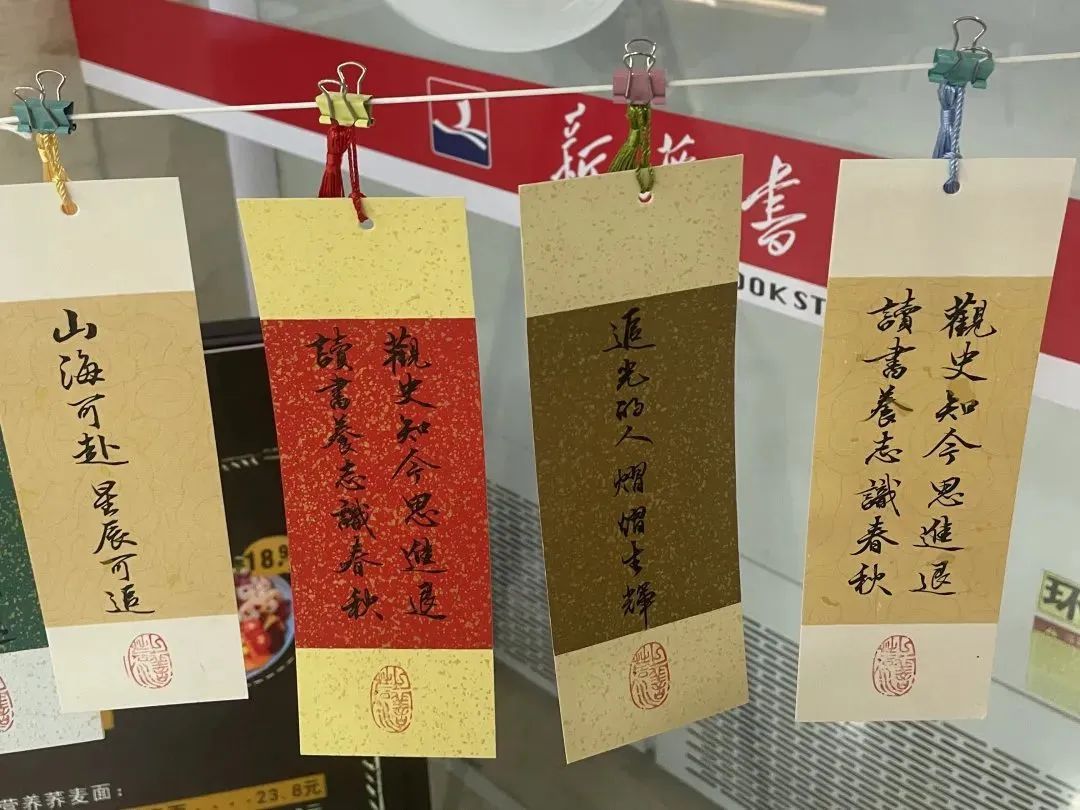 山海可赴星辰可追
觀史知今思進退
讀書養志識春秋
追光的人熠熠生輝
觀史知今思進退
讀書養志識春秋
新華書
OOKST
18.9
营养荞麦面：
....23.8元
环